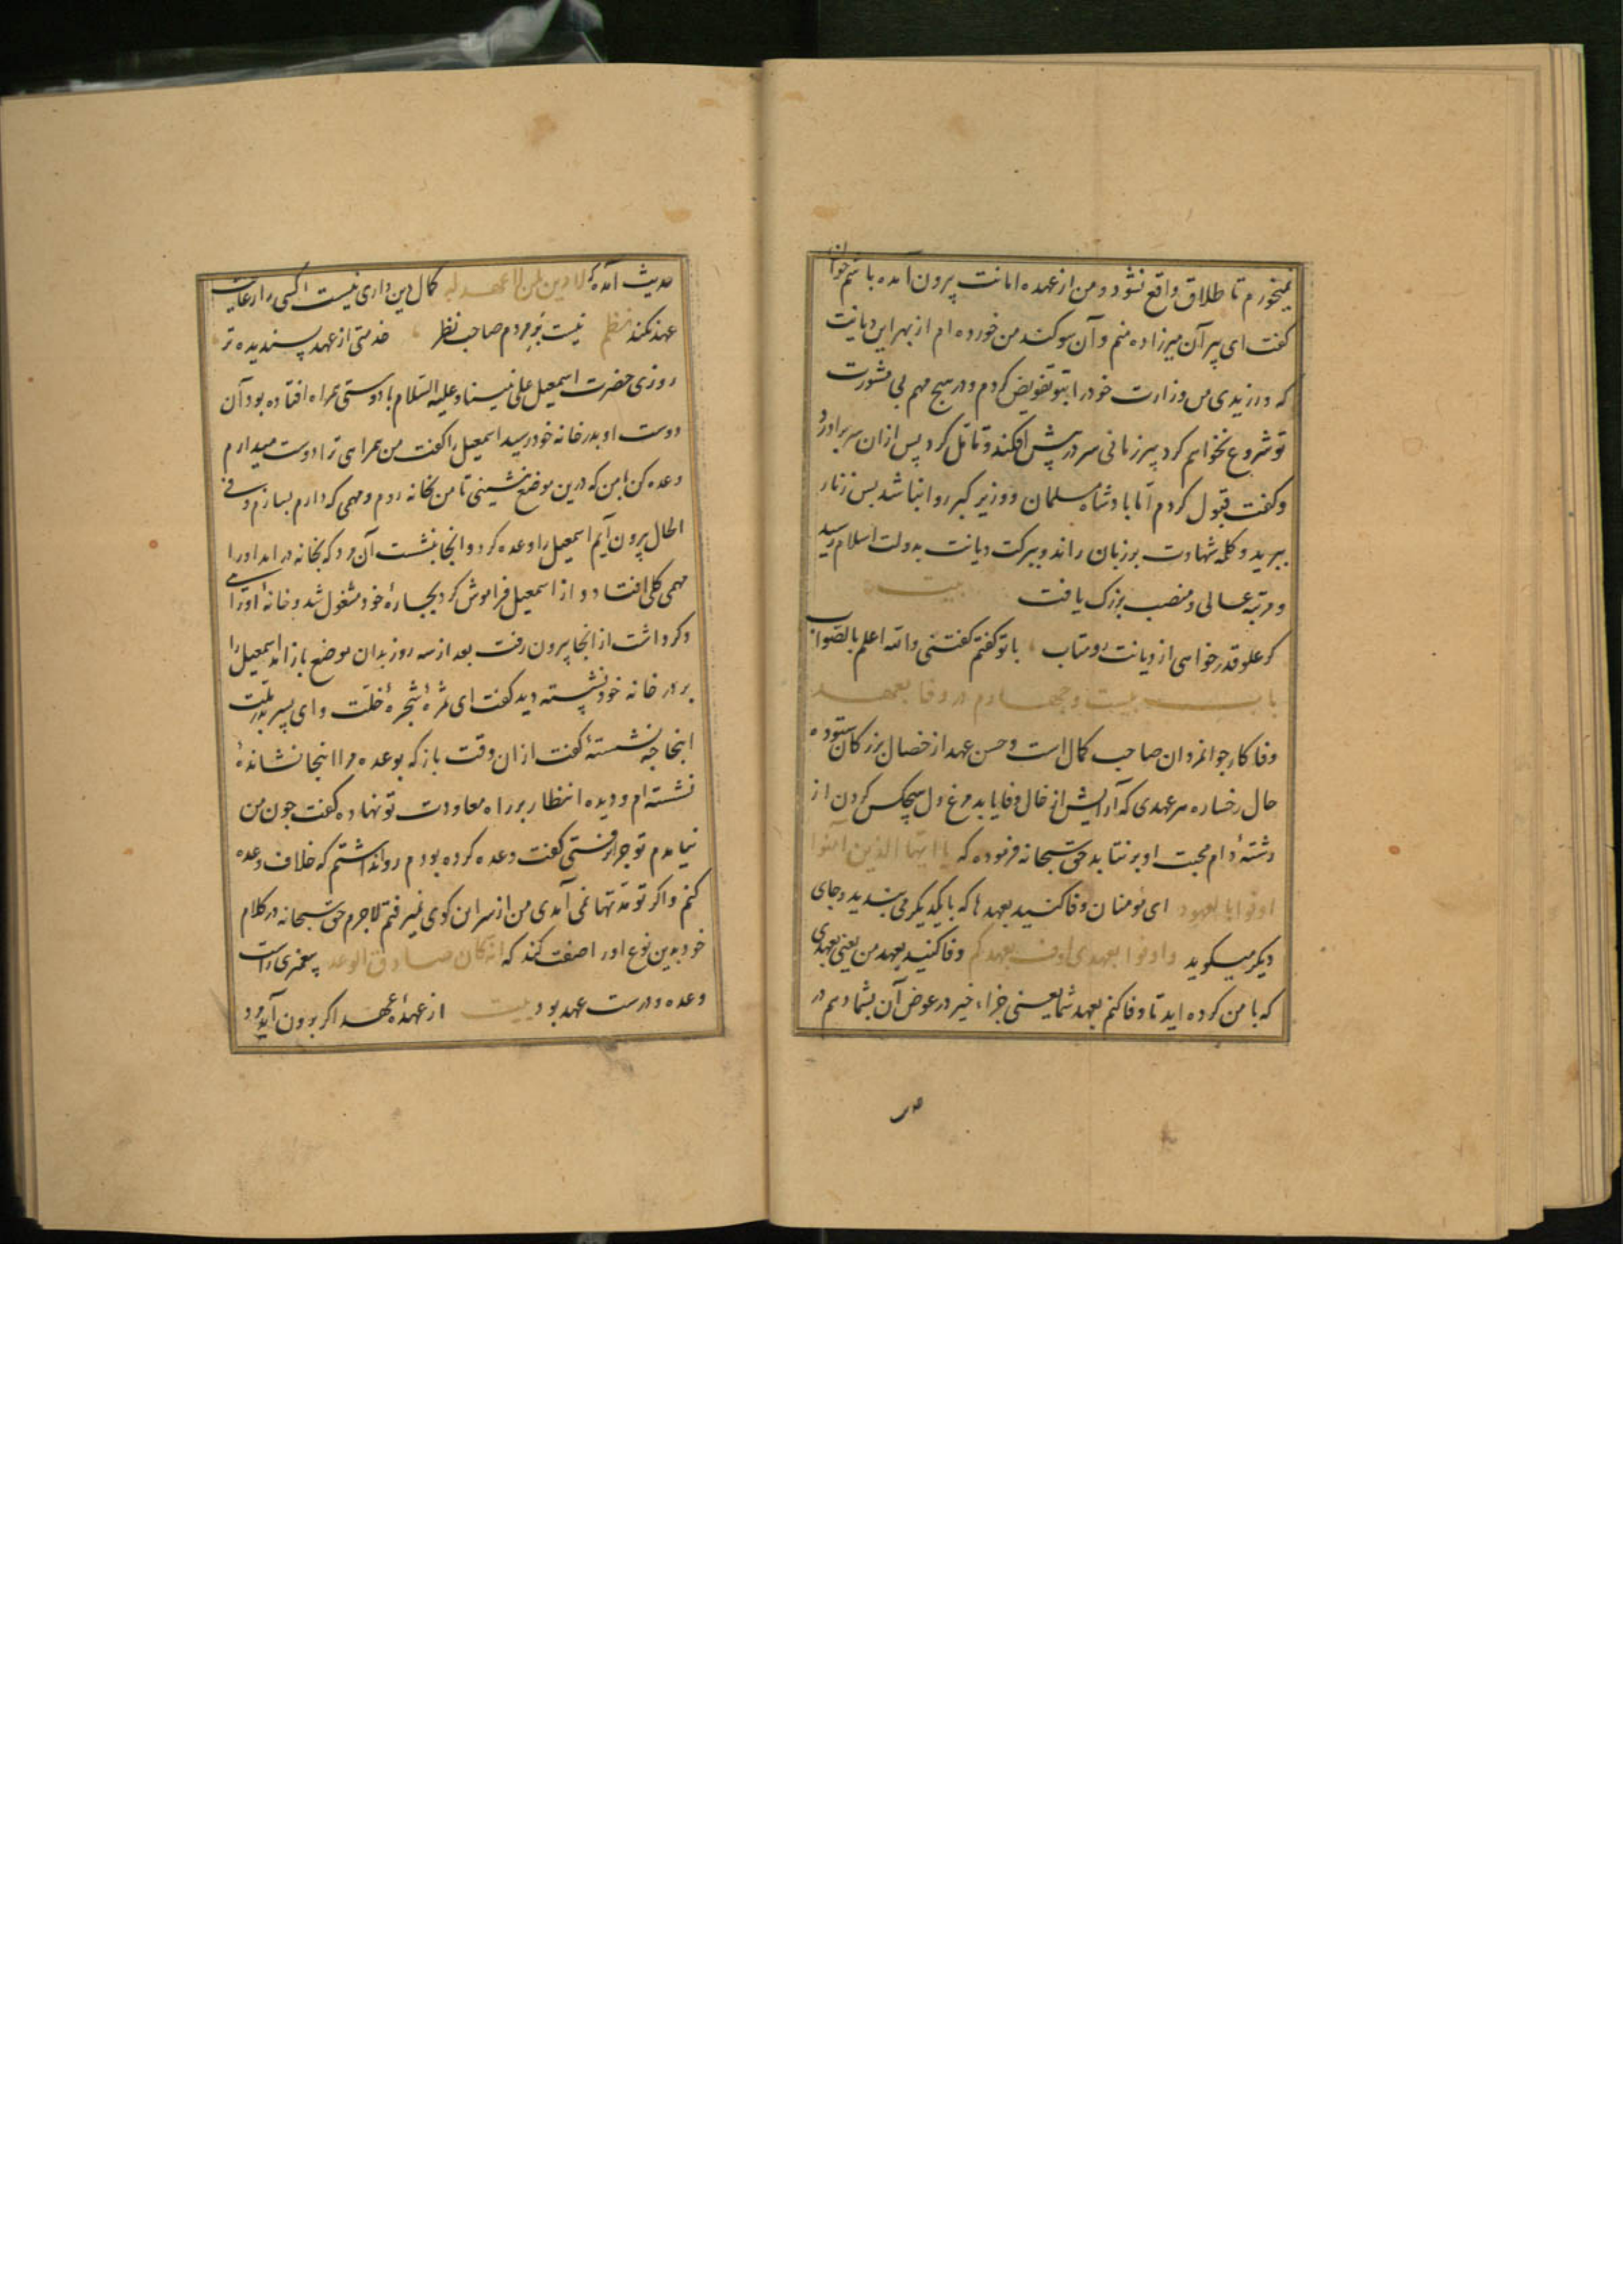 نمیخورم تا طلاق واقع نشود و من از عهده امانت بیرون آمده باشم جوان
گفت ای پیر آن میرزاده منم و آن سوکند من خورده ام از بهر این دیانت
که ورزیدی من وزارت خود را بتو تفویض کردم و در هیچ مهم بی مشورت
تو شروع نخواهم کرد پیر زمانی سر در پیش افکند و تامل کرد پس از ان سر براورد
و کفت قبول کردم اما پادشاه مسلمان و وزیر کبر روا نباشد پس زنار
ببرید و کلمه شهادت بر زبان راند و ببرکت دیانت بدولت اسلام رسید
و مرتبه عالی و منصب بزرک یافت بیت
کر علو قدر خواهی از دیانت رو متاب با تو کفتم کفتنی والله اعلم بالصواب
باب بیست و چهارم در وفا بعهد
وفا کار جوانمردان صاحب کمال است و حسن عهد از خصال بزرکان ستوده
حال رخساره هر عهدی که آرایش از خال وفا یابد مرغ دل هیچکس کردن از
رشتهٔ دام محبت او برنتابد حق سبحانه فرموده که یا ایها الذین آمنوا
اوفوا بالعهود ای مومنان وفا کنید بعهدها که با یکدیکر می بندید و جای
دیکر میکوید و اوفوا بعهدی اوف بعهدکم وفا کنید بعهد من یعنی بعهدی
که با من کرده اید تا وفا کنم بعهد شما یعنی جزاء خیر در عوض آن بشما دهم در
حدیث آمده که لا دین لمن لا عهد له کمال دین داری نیست آکسی را رعایت
عهد نکند نظم نیست بر مردم صاحب نظر خدمتی از عهد پسندیده تر
روزی حضرت اسمعیل علی نبینا و علیه السلام با دوستی همراه افتاده بود آن
دوست او بدر خانه خود رسید اسمعیل را کفت من همراهی ترا دوست میدارم
وعده کن با من که درین موضع نشینی تا من بخانه روم و مهمی که دارم بسازم و فی
الحال بیرون آیم اسمعیل را وعده کرد و انجا بنشست آن مرد که بخانه درامد او را
مهمی کلی افتاد و از اسمعیل فراموش کرد بچارهٔ خود مشغول شد و خانهٔ او راهی
دکر داشت از انجا بیرون رفت بعد از سه روز بدان موضع باز آمد اسمعیل را
بر در خانه خود نشسته دید کفت ای ثمرهٔ شجرهٔ خلت و ای پسر پدر ملت
اینجا چه نشستهٔ کفت از ان وقت باز که بوعده مرا اینجا نشاندهٔ
نشسته ام و دیده انتظار بر راه معاودت تو نهاده کفت چون من
نیامدم تو چرا نرفتی کفت وعده کرده بودم روا نداشتم که خلاف وعده
کنم و اکر تو مدتها نمی آمدی من از سر این کوی نمیرفتم لاجرم حق سبحانه در کلام
خود بدین نوع او را صفت کند که انه کان صادق الوعد پیغمبری راست
وعده و درست عهد بود بیت از عهدهٔ عهد اکر برون آید مرد